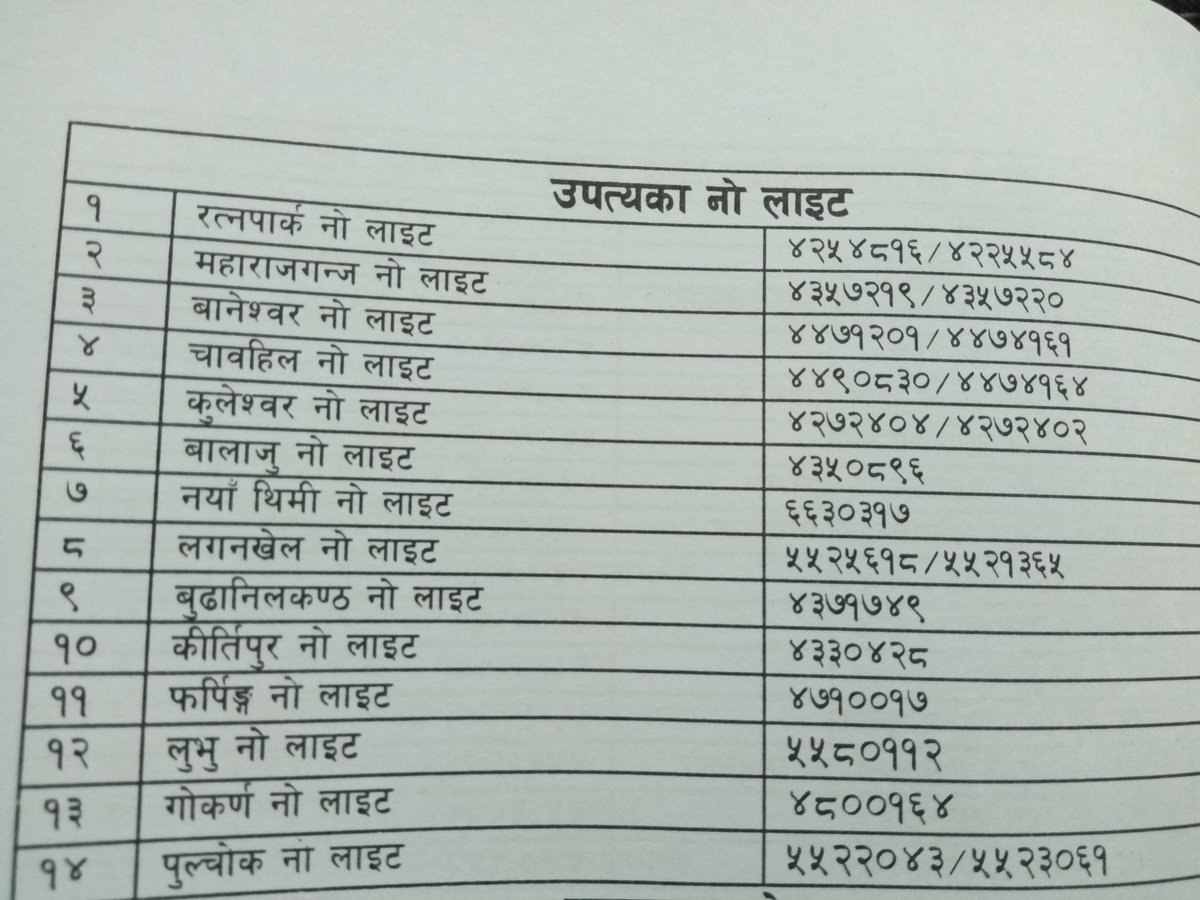 उपत्यका नो लाइट
१ रत्नपार्क नो लाइट ४२५४८१६/४२२५५८४
२ महाराजगन्ज नो लाइट ४३५७२१९/४३५७२२०
३ बानेश्वर नो लाइट ४४७१२०१/४४७४१६१
४ चावहिल नो लाइट ४४९०८३०/४४७४१६४
५ कुलेश्वर नो लाइट ४२७२४०४/४२७२४०२
६ बालाजु नो लाइट ४३५०८९६
७ नयाँ थिमी नो लाइट ६६३०३१७
८ लगनखेल नो लाइट ५५२५६१८/५५२१३६५
९ बुढानिलकण्ठ नो लाइट ४३७१७४९
१० कीर्तिपुर नो लाइट ४३३०४२८
११ फर्पिङ्ग नो लाइट ४७१००१७
१२ लुभु नो लाइट ५५८०११२
१३ गोकर्ण नो लाइट ४८००१६४
१४ पुल्चोक नो लाइट ५५२२०४३/५५२३०६१